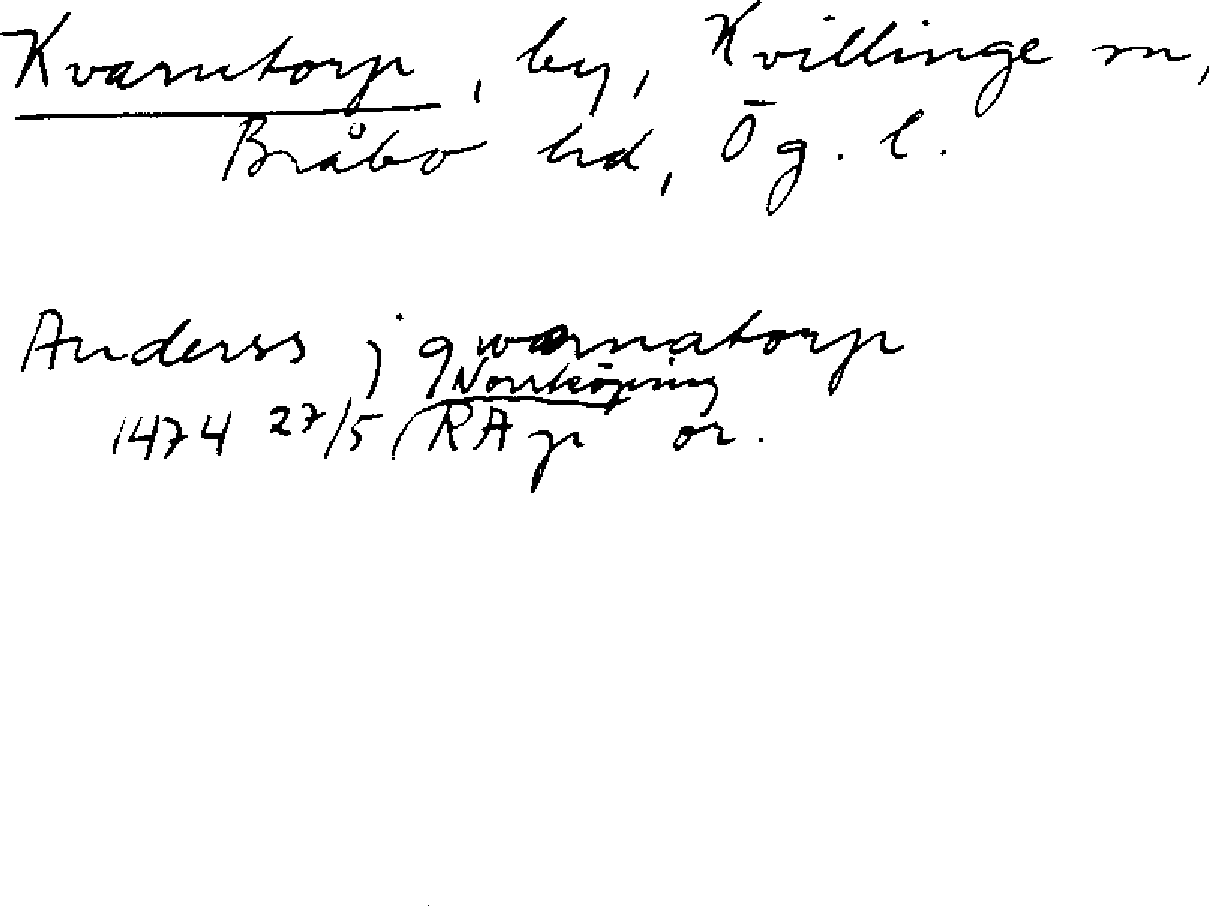 Kvarntorp, by, Kvillinge sn,
Bråbo hd, Ög. l.
Anderss j qwarnatorp
Norrköping
1474 27/5 RAp or.